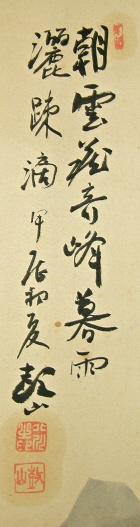 朝雲蔵奇峰暮雨
灑踈滴 甲辰初夏 彭山